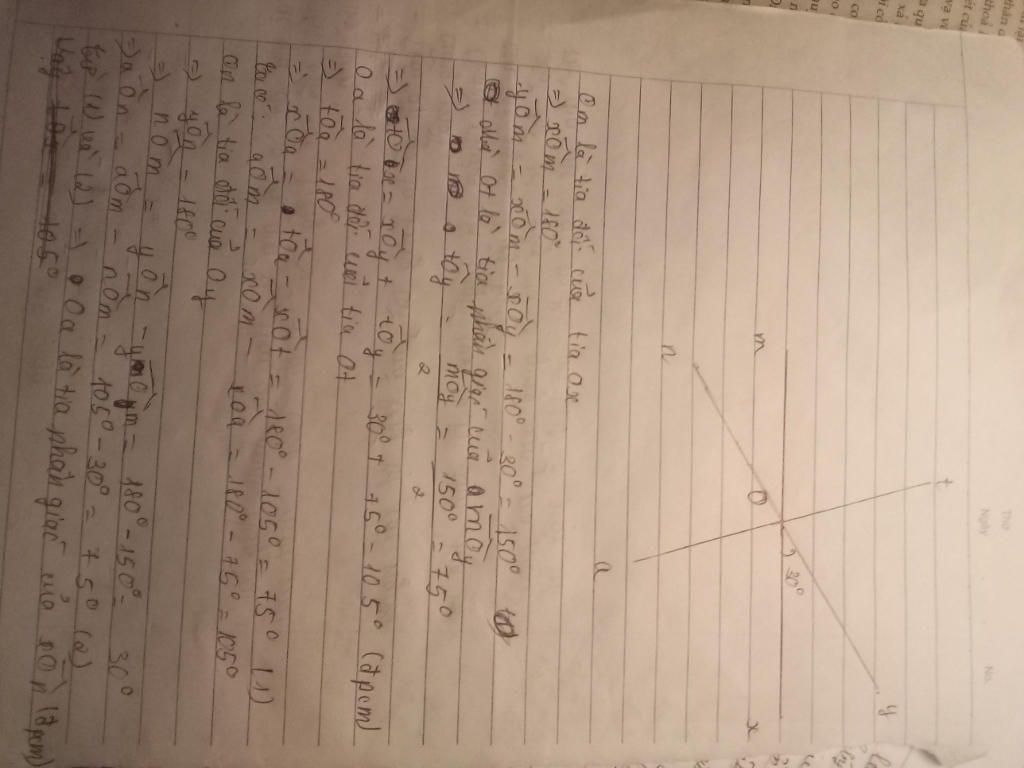 Thứ
Ngày
No.
t
y
m
O
30°
x
n
a
Om là tia đối của tia ox
=> xÔm = 180°
yÔm = xÔm - xÔy = 180° - 30° = 150°
Ot là tia phân giác của mÔy
=> tÔy = mÔy / 2 = 150° / 2 = 75°
=> tÔx = xÔy + tÔy = 30° + 75° = 105° (đpcm)
Oa là tia đối của tia Ot
=> tÔa = 180°
=> xÔa = tÔa - xÔt = 180° - 105° = 75° (1)
aÔm = xÔm - xÔa = 180° - 75° = 105°
On là tia đối của Oy
=> yÔn = 180°
=> nÔm = yÔn - yÔm = 180° - 150° = 30°
=> aÔn = aÔm - nÔm = 105° - 30° = 75° (2)
Từ (1) và (2) => Oa là tia phân giác của xÔn (đpcm)